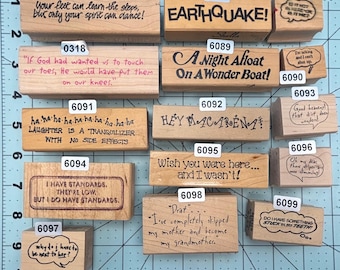 Your feet can learn the steps,
but only your spirit can dance!
EARTHQUAKE!
0318
6089
"If God had wanted us to touch
our toes, He would have put them
on our knees."
A Night Afloat
On A Wonder Boat!
6090
6091
6092
6093
ha ha ha ha ha ha ha ha ha
LAUGHTER IS A TRANQUILIZER
WITH NO SIDE EFFECTS
HEY MACARENA!
6094
6095
6096
I HAVE STANDARDS.
THEY'RE LOW,
BUT I DO HAVE STANDARDS.
Wish you were here...
and I wasn't!
6097
6098
6099
Why do I have to
be next to her?
"Drat . . . .
I've completely skipped
my mother and become
my grandmother."
DO I HAVE SOMETHING
STUCK IN MY TEETH?